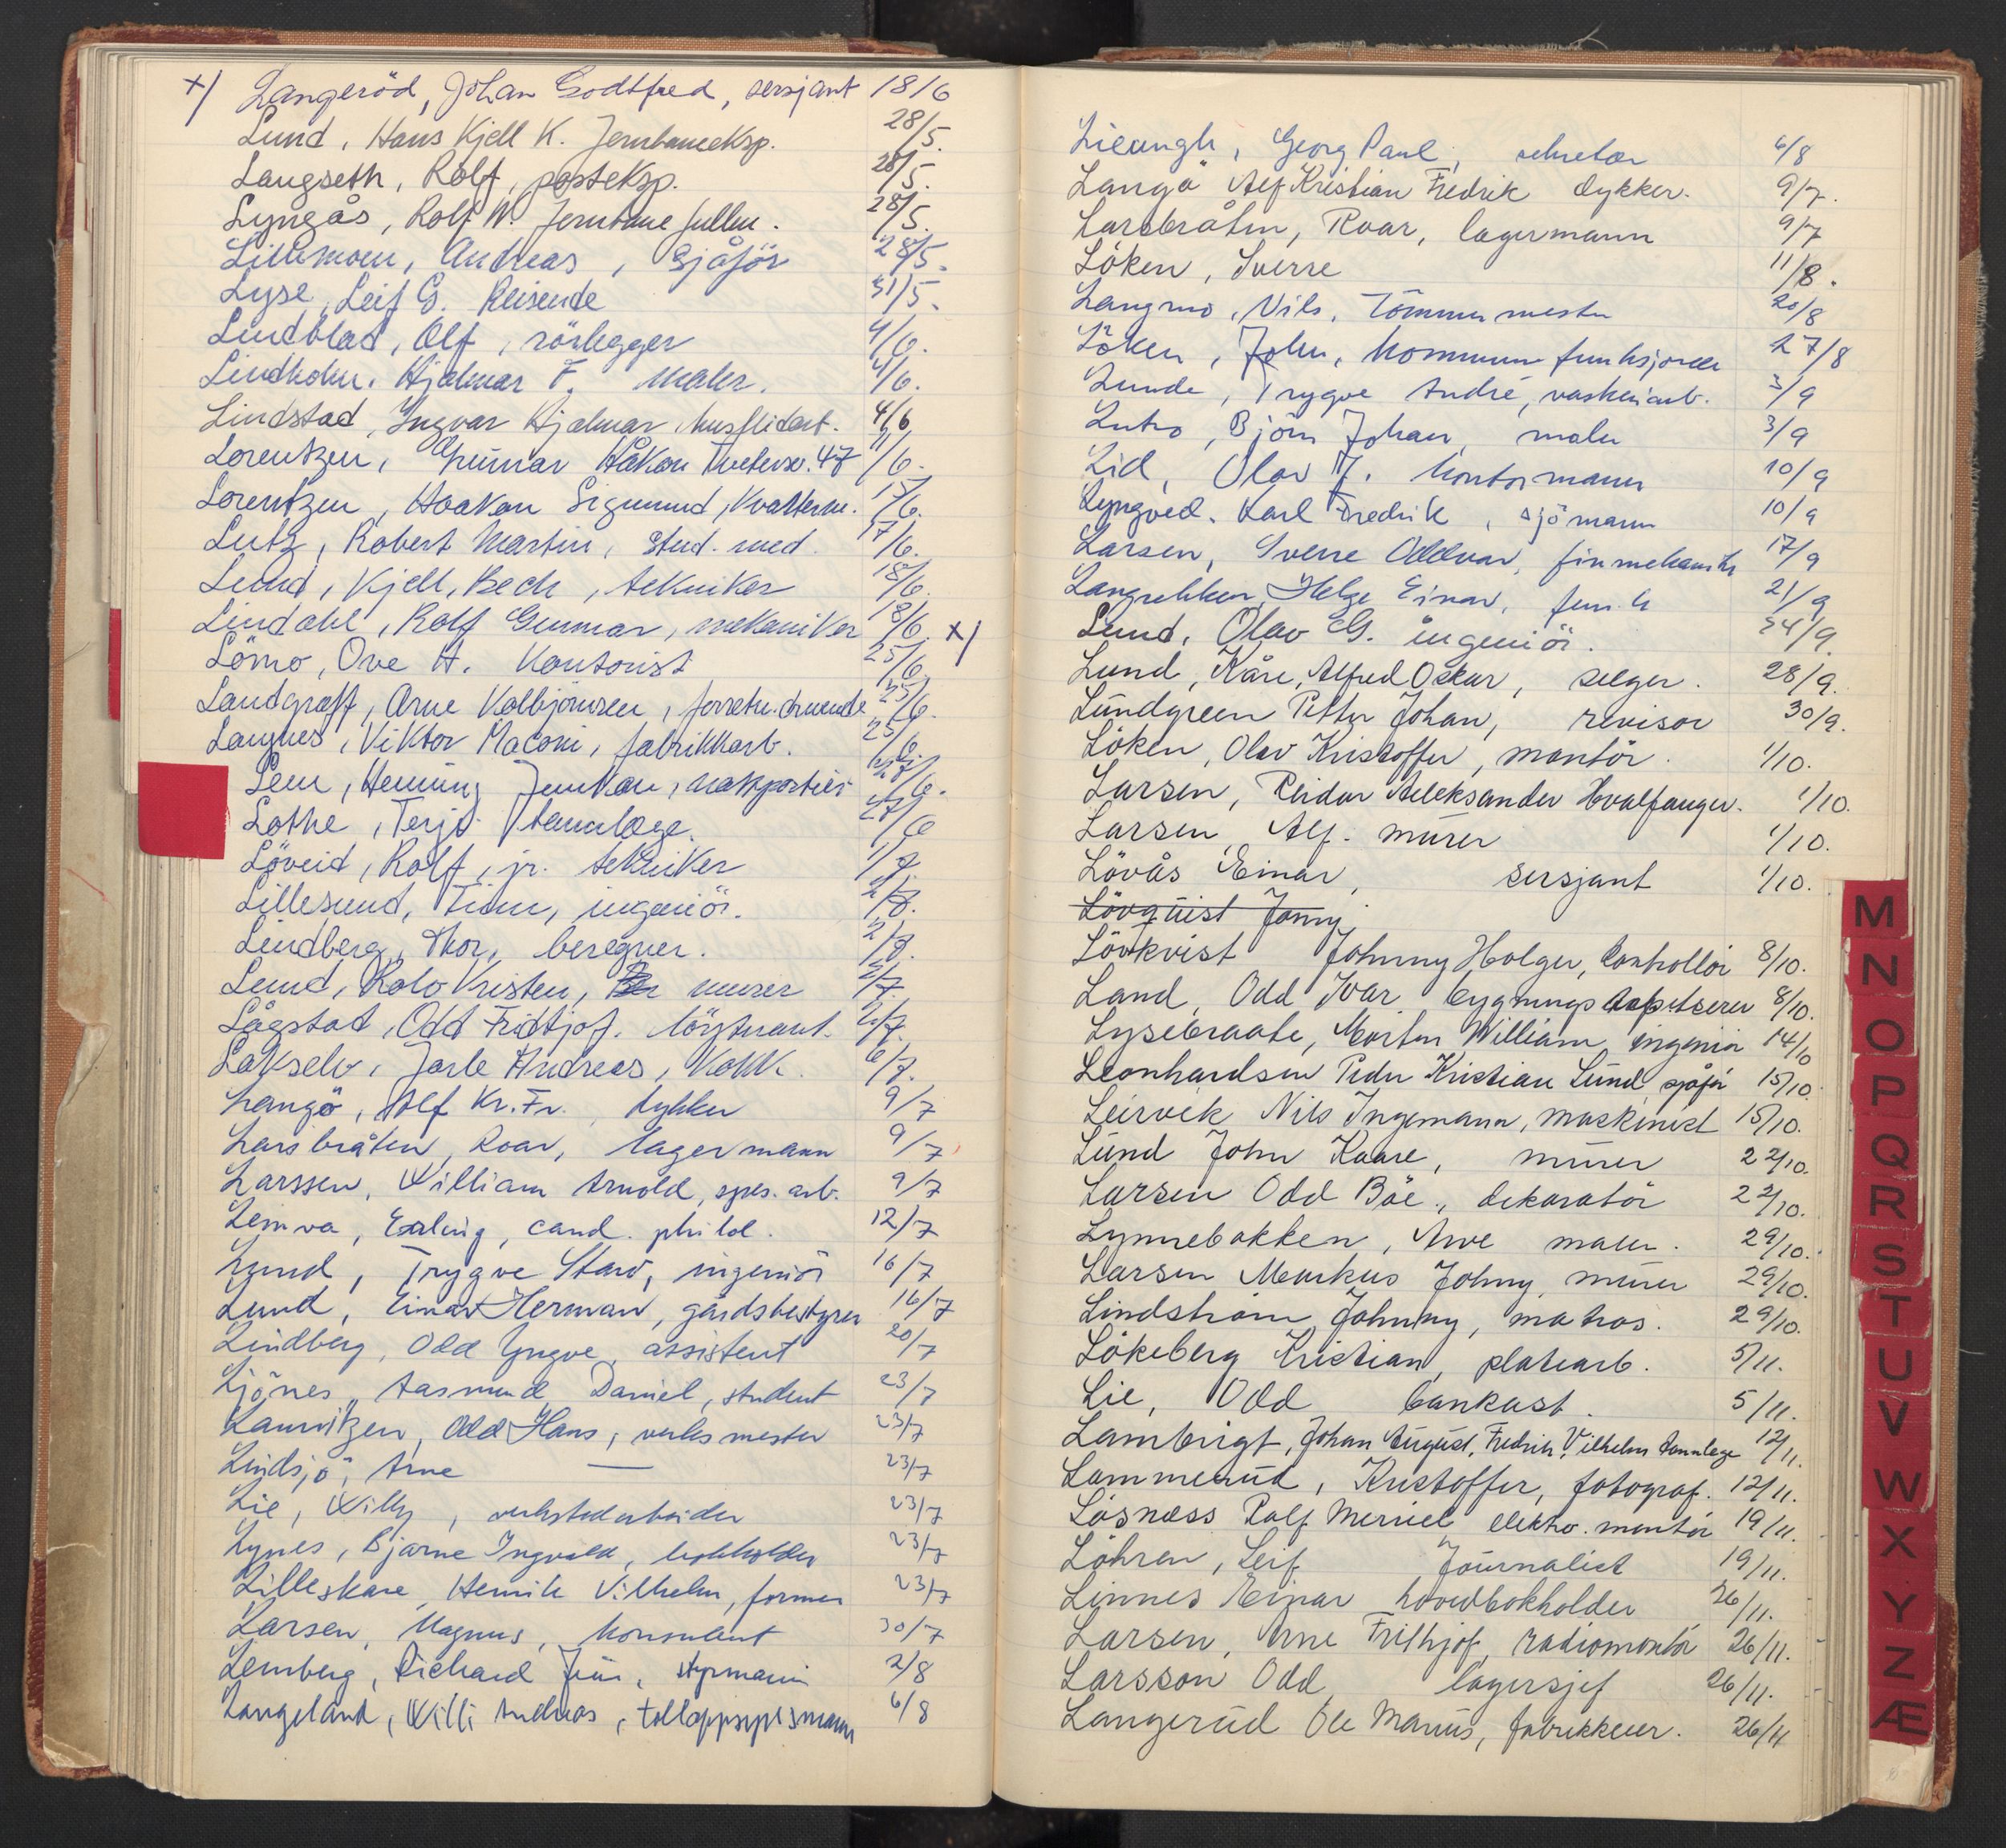 x) Langeröd, Johan Godtfred, sersjant 18/6
Lund, Hans Kjell K. Jernbaneeksp. 28/5.
Langseth, Rolf, posteksp. 28/5.
Lyngås, Rolf W. Jernbane fullm. 28/5.
Lillemoen, Andreas, Sjåför 28/5.
Lyse, Leif G. Reisende 31/5.
Lindblad, Olf, rörlegger 4/6.
Lindholm, Hjalmar F. maler. 4/6.
Lindstad, Ingvar Hjalmar 4/6
Lorentzen, Gunnar Håkon 47 11/6.
Lorentzen, Haakon Sigmund, Kvarterm. 15/6.
Lutz, Robert Martin, stud. med. 17/6.
Lund, Kjell, Bech, tekniker 18/6.
Lindahl, Rolf Gunnar, mekaniker 18/6. x)
Lömo, Ove H. Kontorist 25/6
Landgraff, Arne Kolbjörnsen, forretn.drivende 25/6.
Langnes, Viktor Maconi, fabrikkarb. 25/6.
Lem, Henning, nattportier /6.
Lothe, Terje tannlege. 27/6
Löveid, Rolf, jr. tekniker 1/7
Lillesund, Finn, ingeniör. 2/7.
Lindberg, Thor, beregner. 2/7.
Lund, Rolv Kristen, murer 2/7.
Lågstad, Odd Fridtjof. löytnant. 2/7.
Lakselv, Jarle Andreas, Kokk. 6/7.
Langö, Alf Kr. Fr., dykker 9/7
Larsbråten, Roar, lagermann 9/7
Larssen, William Arnold, spes. arb. 9/7
Lemva, Erling, cand. philol. 12/7
Lund, Trygve Stav, ingeniör 16/7
Lund, Einar Herman, gårdsbestyrer 16/7
Lindberg, Odd Yngve, assistent 20/7
Ljönes, Aasmund Daniel, student 23/7
Lauritzen, Odd Hans, verksmester 23/7
Lindsjö, Arne — 23/7
Lie, Willy, verkstedarbeider 23/7
Lynes, Bjarne Ingvald, bokholder 23/7
Lilleskare, Henrik Vilhelm, former 23/7
Larsen, Magnus, konsulent 30/7
Lemberg, Richard, styrmann 2/8
Langeland, Willi Andreas, tolloppsynsmann 6/8
Lieungh, Georg Paul, sekretær 6/8
Langö Alf Kristian Fredrik dykker. 9/7.
Larsbråten, Roar, lagermann 9/7
Löken, Sverre 11/8.
Langmo, Nils, Tömmermester 20/8
Löken, John, kommunefunksjonær 27/8
Lunde, Trygve André, vaskeriarb. 3/9
Lutro, Björn Johan, maler 3/9
Lid, Olav J. kontormann 10/9
Lyngved, Karl Fredrik, sjömann 10/9
Larsen, Sverre Oddvar, finmekaniker 17/9
Langrekken, Helge Einar, 21/9
Lund, Olav G. ingeniör. 24/9.
Lund, Kåre, Alfred Oskar, selger. 28/9.
Lundgreen Petter Johan, revisor 30/9.
Löken, Olav Kristoffer, montör. 1/10.
Larsen, Reidar Aleksander Hvalfanger. 1/10.
Larsen, Alf. murer 1/10.
Lövås Einar, sersjant 1/10.
Lövquist Jonny
Lövkvist Johnny Holger, kontrollör 8/10.
Land, Odd Ivar bygningstapetserer 8/10.
Lysebraate, Morten William, ingeniör 14/10
Leonhardsen Peder Kristian Lund sjåför 15/10.
Leirvik Nils Ingemann, maskinist 15/10.
Lund John Kaare, murer 22/10.
Larsen Odd Böe, dekoratör 22/10.
Lynnebakken, Arve maler. 29/10.
Larsen Markus Johny, murer 29/10.
Lindström Johnny, matros. 29/10.
Lökeberg Kristian, platearb. 5/11.
Lie, Odd bankass. 5/11.
Lambrigt, Johan August, Fredrik, Vilhelm tannlege 12/11.
Lammerud, Kristoffer, fotograf. 12/11.
Lösnæss Ralf elektro. montör 19/11.
Löhren, Leif Journalist 19/11.
Linnes Einar hovedbokholder 26/11.
Larsen, Arne Frithjof, radiomontör 26/11.
Larsson Odd lagersjef 26/11.
Langerud Ole Marius, fabrikkeier. 26/11
M
N
O
P
Q
R
S
T
U
V
W
X
Y
Z
Æ